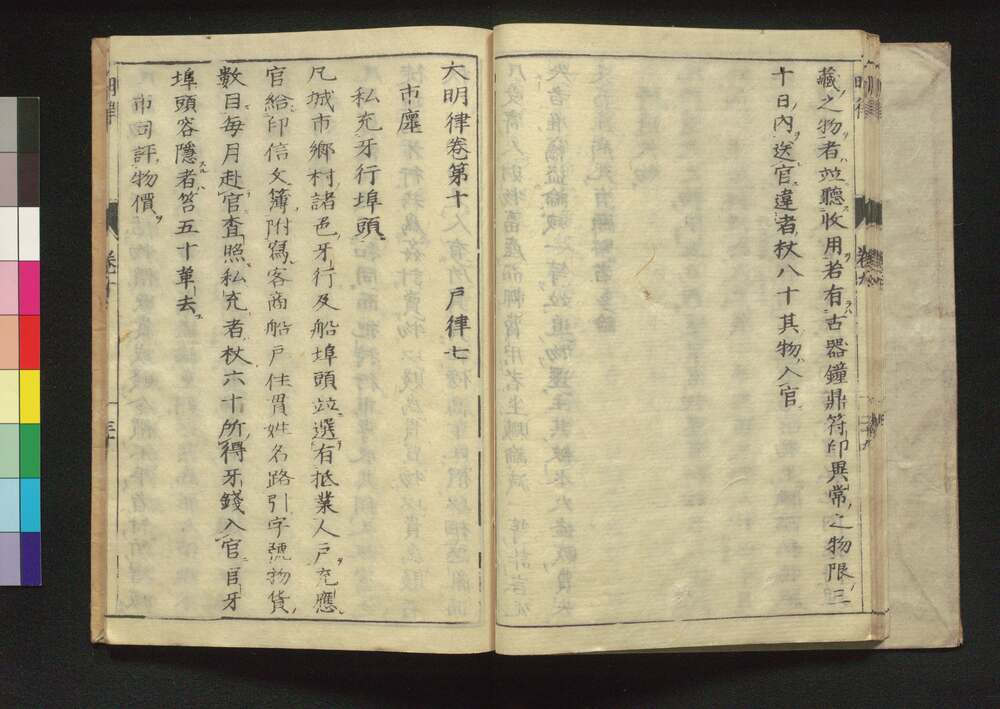 藏之物者並聽收用若有古器鐘鼎符印異常之物限三
十日內送官違者杖八十其物入官
大明律卷第十 戶律七
市廛
私充牙行埠頭
凡城市鄉村諸色牙行及船埠頭並選有抵業人戶充應
官給印信文簿附寫客商船戶住貫姓名路引字號物貨
數目每月赴官查照私充者杖六十所得牙錢入官官牙
埠頭容隱者笞五十革去
市司評物價